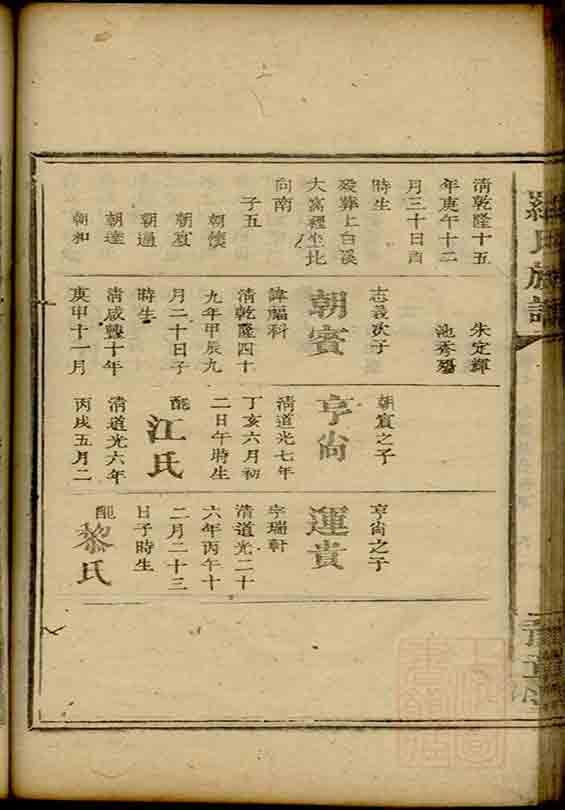 羅氏族譜
清乾隆十五
年庚午十二
月三十日酉
時生
歿葬上白溪
大窩裡坐北
向南
子五
朝懷
朝賓
朝過
朝達
朝和
朱定輝
池秀
志義次子
朝賓
諱福科
清乾隆四十
九年甲辰九
月二十日子
時生
清咸豐十年
庚申十一月
朝賓之子
亨尚
清道光七年
丁亥六月初
二日午時生
配
江氏
清道光六年
丙戌五月二
亨尚之子
運貴
字瑞軒
清道光二十
六年丙午十
二月二十三
日子時生
配
黎氏